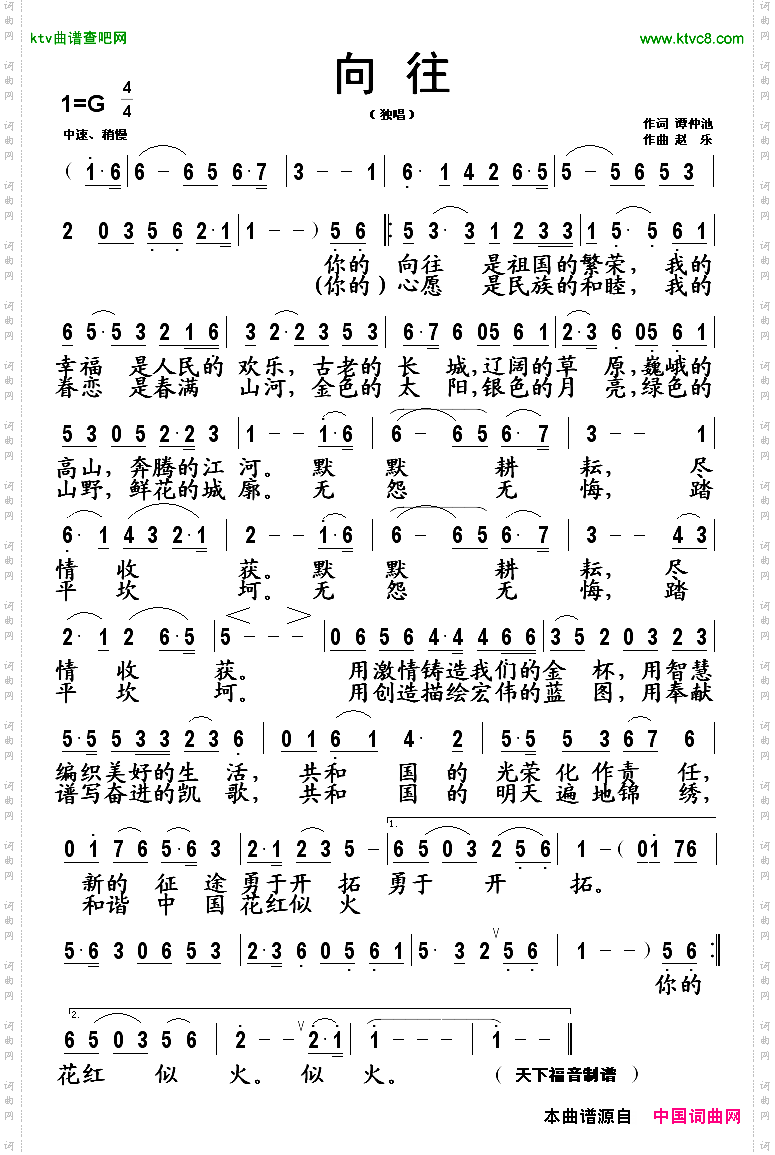 ktv曲谱查吧网 www.ktvc8.com
向 往
（独唱）
1=G 4/4
中速、稍慢
作词 谭仲池
作曲 赵 乐
( 1·6 | 6 - 6 5 6·7 | 3 - - 1 | 6· 1 4 2 6·5 | 5 - 5 6 5 3 |
2 0 3 5 6 2·1 | 1 - - ) 5 6 |: 5 3· 3 1 2 3 3 | 1 5· 5 6 1 |
你的 向往 是祖国的繁荣，我的
(你的)心愿 是民族的和睦，我的
6 5·5 3 2 1 6 | 3 2·2 3 5 3 | 6·7 6 05 6 1 | 2·3 6 05 6 1 |
幸福 是人民的 欢乐，古老的 长 城，辽阔的草 原，巍峨的
春恋 是春满 山河，金色的 太 阳，银色的月 亮，绿色的
5 3 0 5 2·2 3 | 1 - - 1·6 | 6 - 6 5 6·7 | 3 - - 1 |
高山，奔腾的江 河。默 默 耕 耘，尽
山野，鲜花的城 廓。无 怨 无 悔，踏
6· 1 4 3 2·1 | 2 - - 1·6 | 6 - 6 5 6·7 | 3 - - 4 3 |
情 收 获。默 默 耕 耘，尽
平 坎 坷。无 怨 无 悔，踏
2· 1 2 6·5 | 5 - - - | 0 6 5 6 4·4 4 6 6 | 3 5 2 0 3 2 3 |
情 收 获。 用激情铸造我们的金 杯，用智慧
平 坎 坷。 用创造描绘宏伟的蓝 图，用奉献
5·5 5 3 3 2 3 6 | 0 1 6 1 4· 2 | 5·5 5 3 6 7 6 |
编织美好的生 活， 共和 国 的 光荣化作责 任，
谱写奋进的凯 歌， 共和 国 的 明天遍地锦 绣，
1.
0 1 7 6 5·6 3 | 2·1 2 3 5 - | 6 5 0 3 2 5 6 | 1 - ( 01 76 |
新的 征 途 勇于开 拓 勇于 开 拓。
和谐 中 国 花红似 火
5·6 3 0 6 5 3 | 2·3 6 0 5 6 1 | 5· 3 2 5 6 | 1 - - ) 5 6 :|
你的
2.
6 5 0 3 5 6 | 2 - - 2·1 | 1 - - - | 1 - ‖
花红 似 火。似 火。 （ 天下福音制谱 ）
本曲谱源自 中国词曲网
词曲网